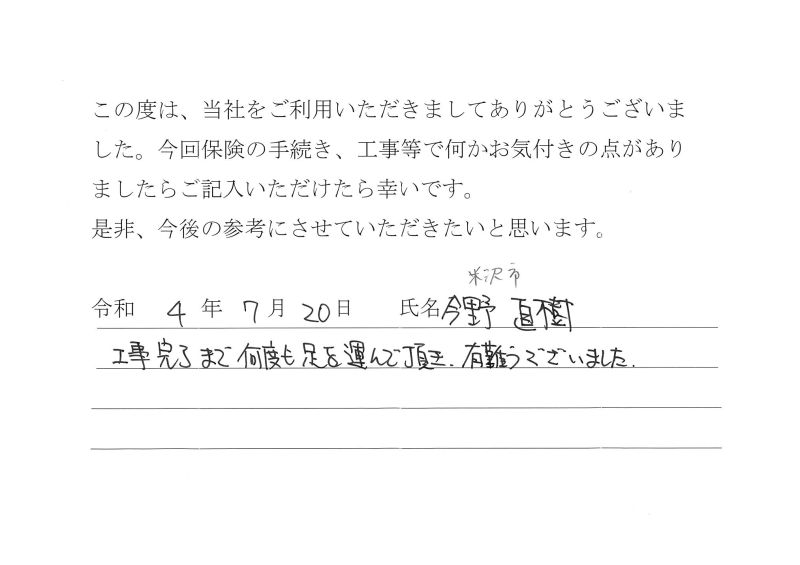 この度は、当社をご利用いただきましてありがとうございま
した。今回保険の手続き、工事等で何かお気付きの点があり
ましたらご記入いただけたら幸いです。
是非、今後の参考にさせていただきたいと思います。
米沢市
令和 4 年 7 月 20 日 氏名 今野 直樹
工事完了まで何度も足を運んで頂き、有難うございました。